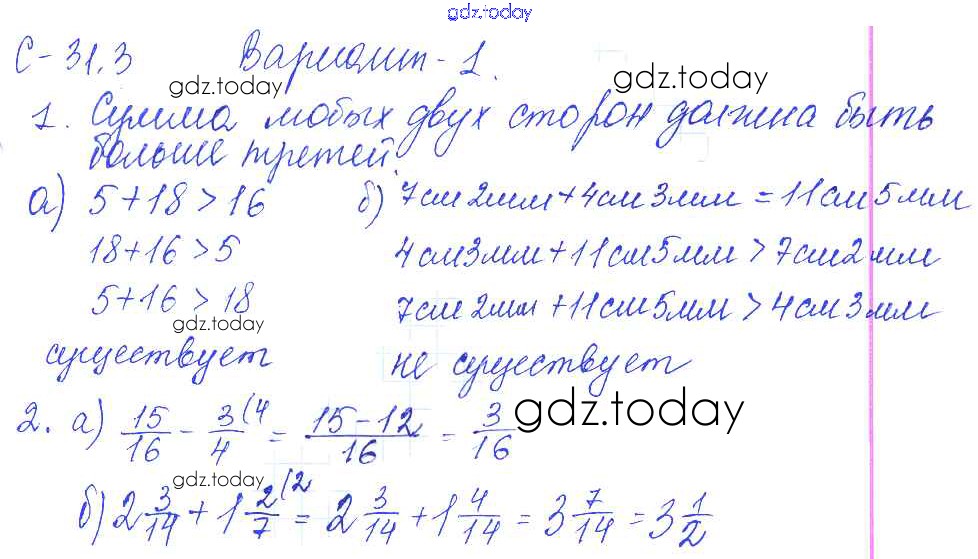 gdz.today
С-31.3 Вариант-1.
gdz.today gdz.today
1. Сумма любых двух сторон должна быть
больше третей
gdz.today
а) 5+18>16 б) 7см2мм+4см3мм=11см5мм
18+16>5 4см3мм+11см5мм>7см2мм
5+16>18 7см2мм+11см5мм>4см3мм
gdz.today
существует не существует
gdz.today
2. а) 15/16 - 3/4 (4 = 15-12/16 = 3/16
gdz.today
б) 2 3/14 + 1 2/7 (2 = 2 3/14 + 1 4/14 = 3 7/14 = 3 1/2